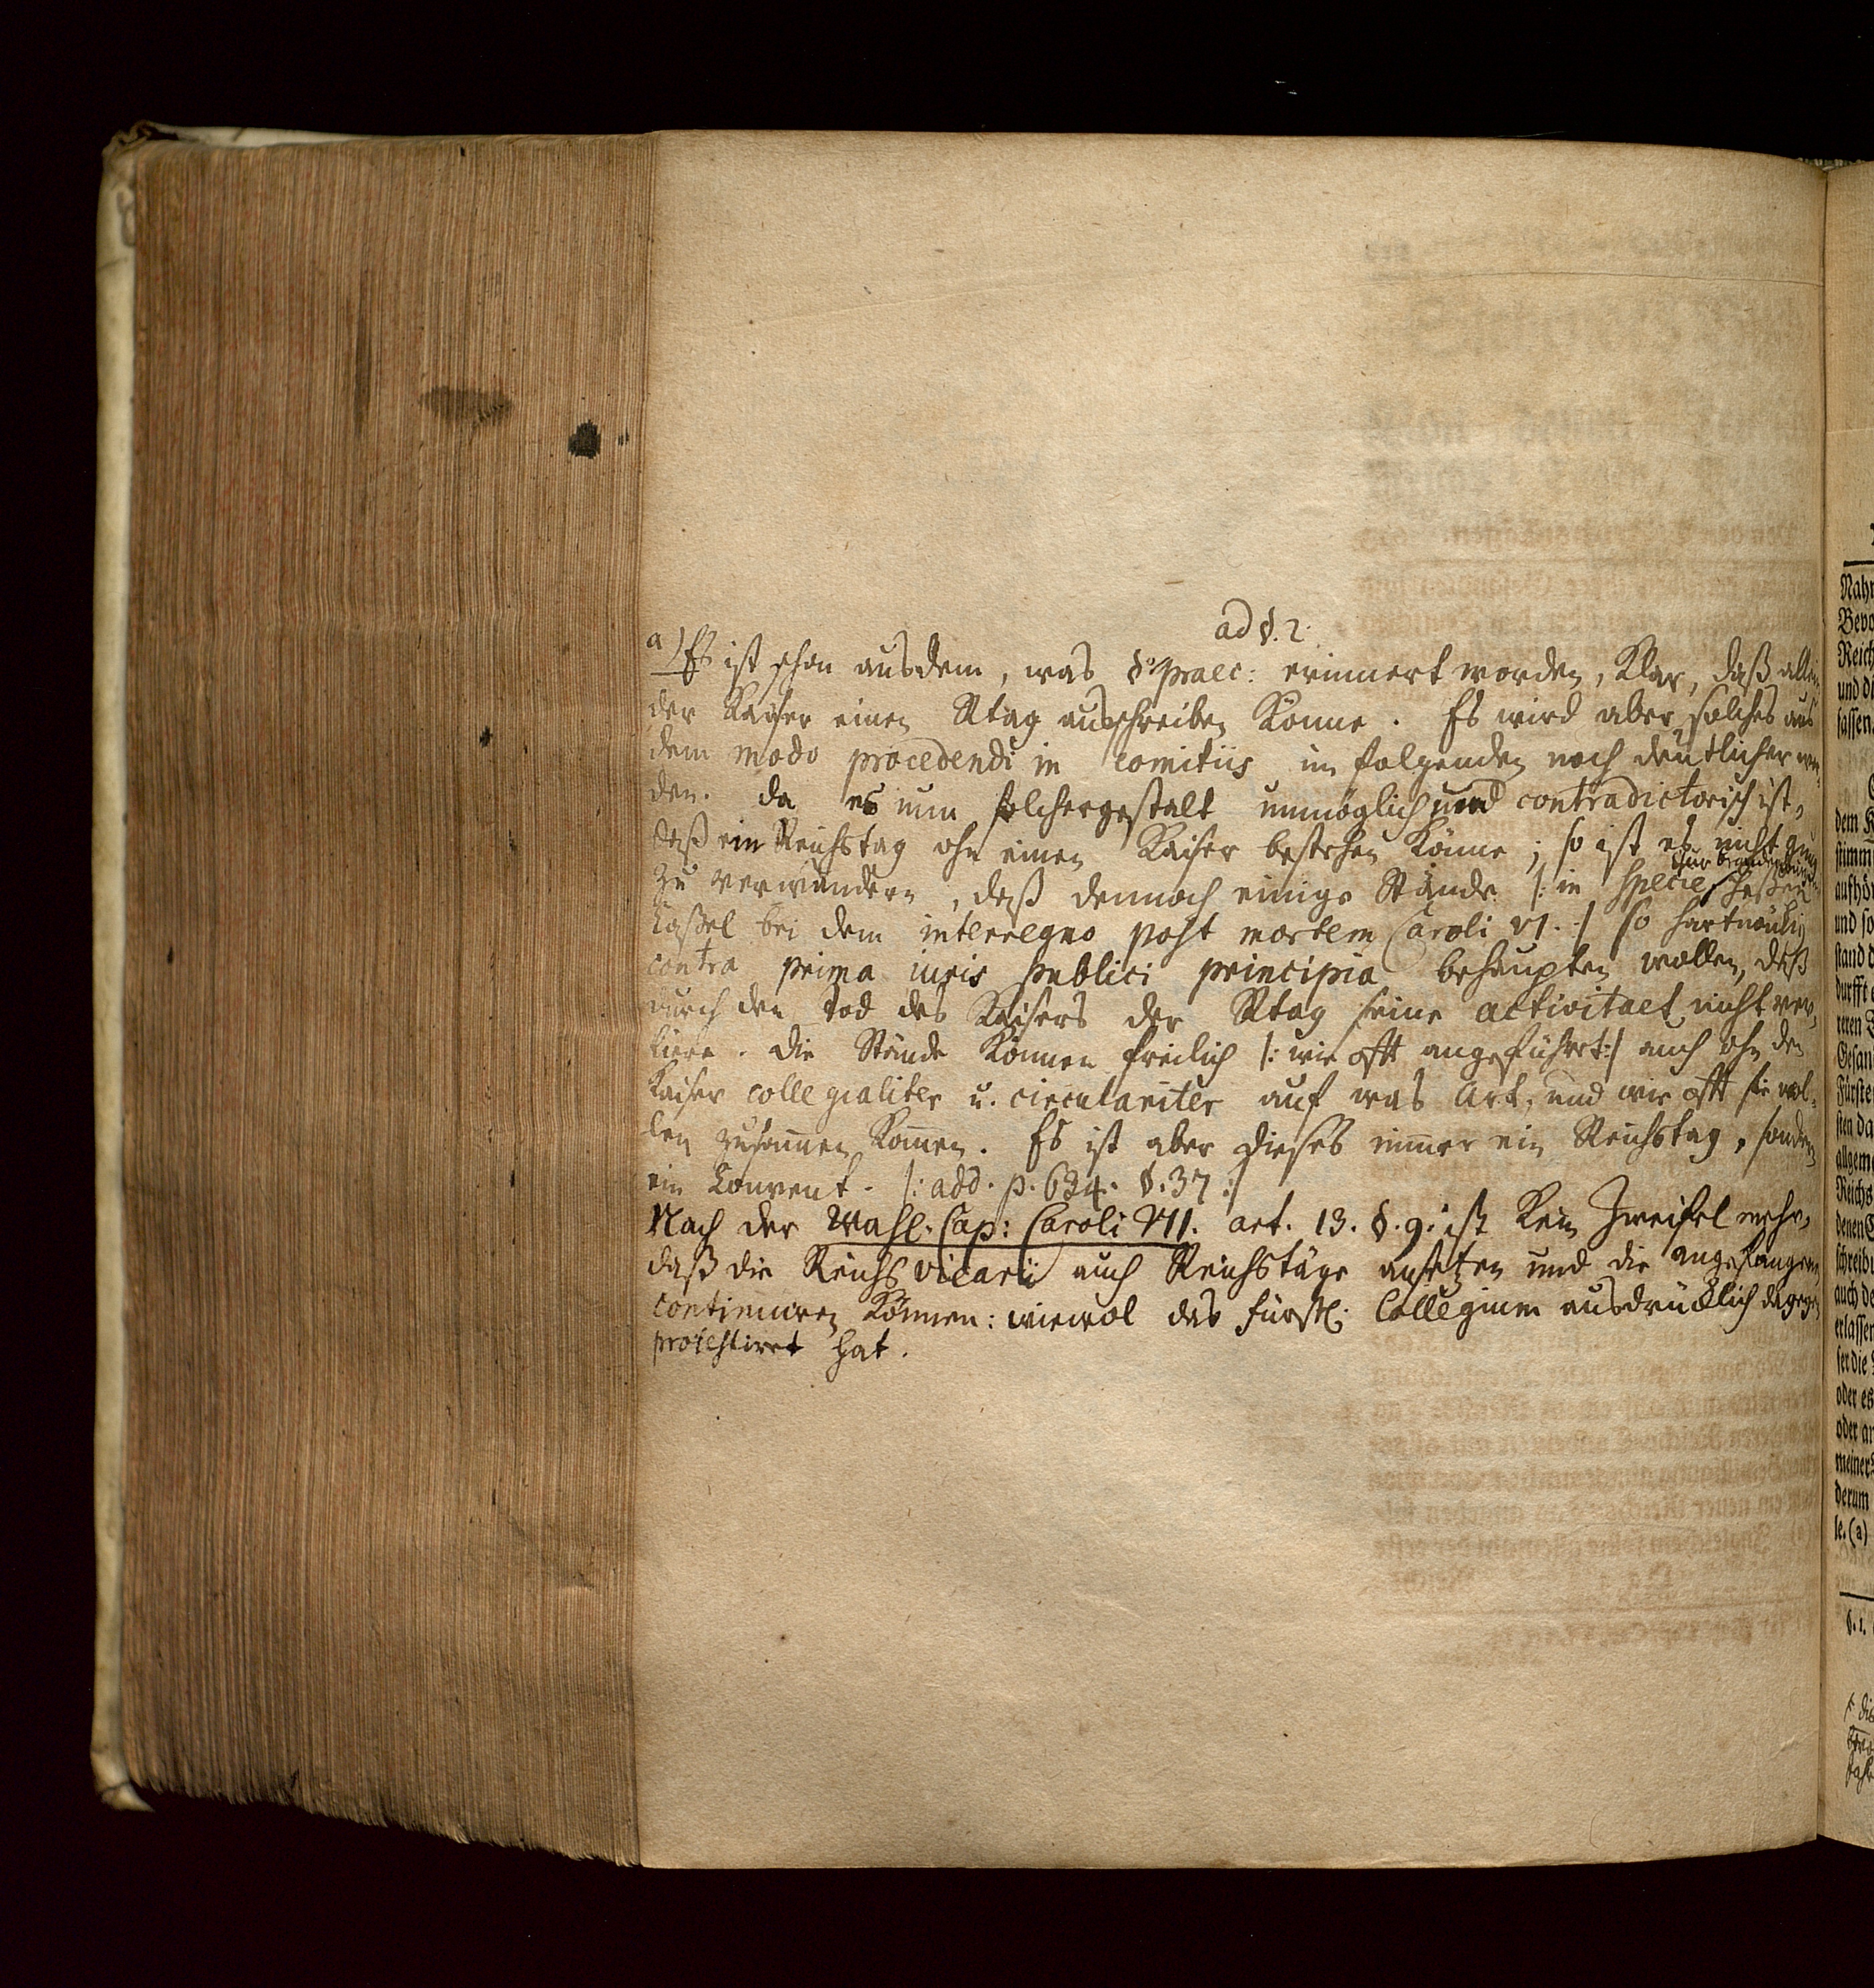 ad §. 2.
a) Es ist schon aus dem, was §. praec: erinnert worden, klar, daß allein
der Kaiser einen Rtag ausschreiben könne. Es wird aber solches aus
dem modo procedendi in comitiis im folgenden noch deutlicher wer-
den. da es nun solchergestalt unmöglich und contradictorisch ist,
daß ein Reichstag ohn einen Kaiser bestehen könne; so ist es nicht gnug
zu verwundern, daß dennoch einige Stände /: in specie Heßen
Caßel bei dem interregno post mortem Caroli VI. :/ so hartnäckig
contra prima iuris publici principia behaupten wollen, daß
durch den Tod des Kaisers der Rtag seine activitaet nicht ver-
liere. Die Stände können freilich /: wie offt angeführt :/ auch ohn den
Kaiser collegialiter u. circulariter auf was Art, und wie offt sie wol-
len zusam̄en kom̄en. Es ist aber dieses nim̄er ein Reichstag, sondern
ein Convent. /: add. p. 634. §. 37 :/
Nach der Wahl-Cap: Caroli VII. art. 13. §. 9. ist kein Zweifel mehr,
daß die Reichs Vicarii auch Reichstäge ansetzen und die angefangene
continuiren können: wiewol das fürstl: Collegium ausdrücklich dagegen
protestiret hat.
Nah
Bevo
Reich
und di
fassen.
dem K
stimm
aufhö
und so
stand d
durfft
teren
Gesan
Fürste
sten da
allgem
Reichs
denen
schreib
auch de
erlassen
ser die
oder es
oder an
meiner
derum
le. (a)
§. 1.